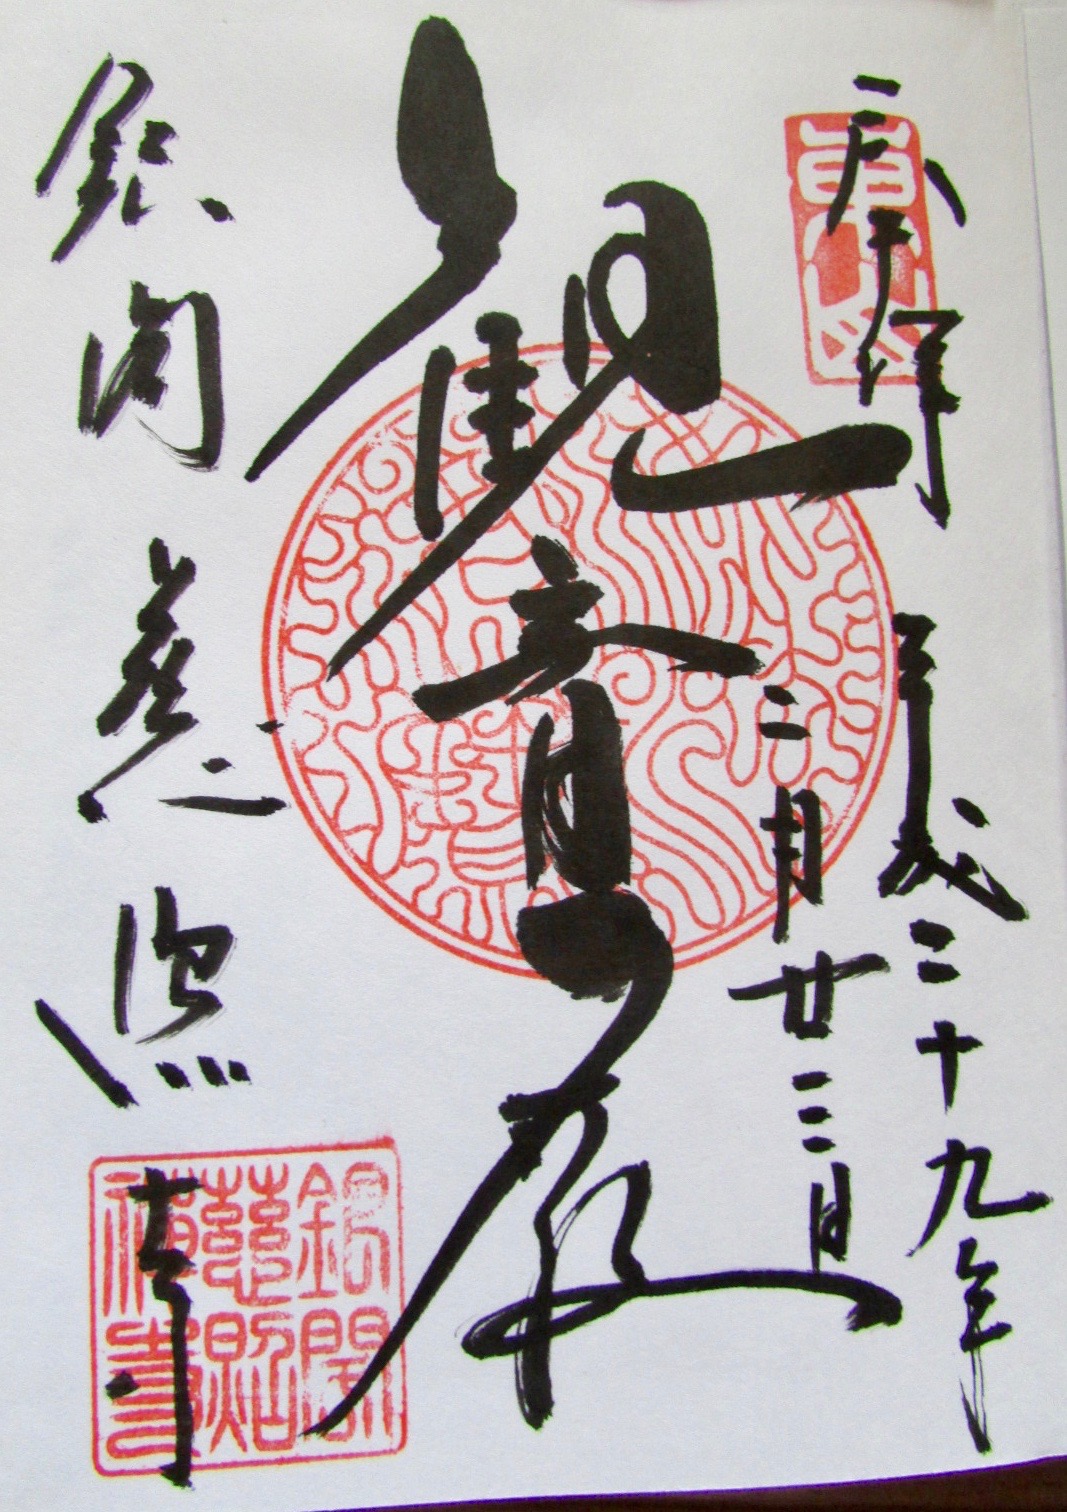 奉拝
平成二十九年
二月廿三日
観音殿
銀閣
慈照寺
銀閣
慈照
禅寺